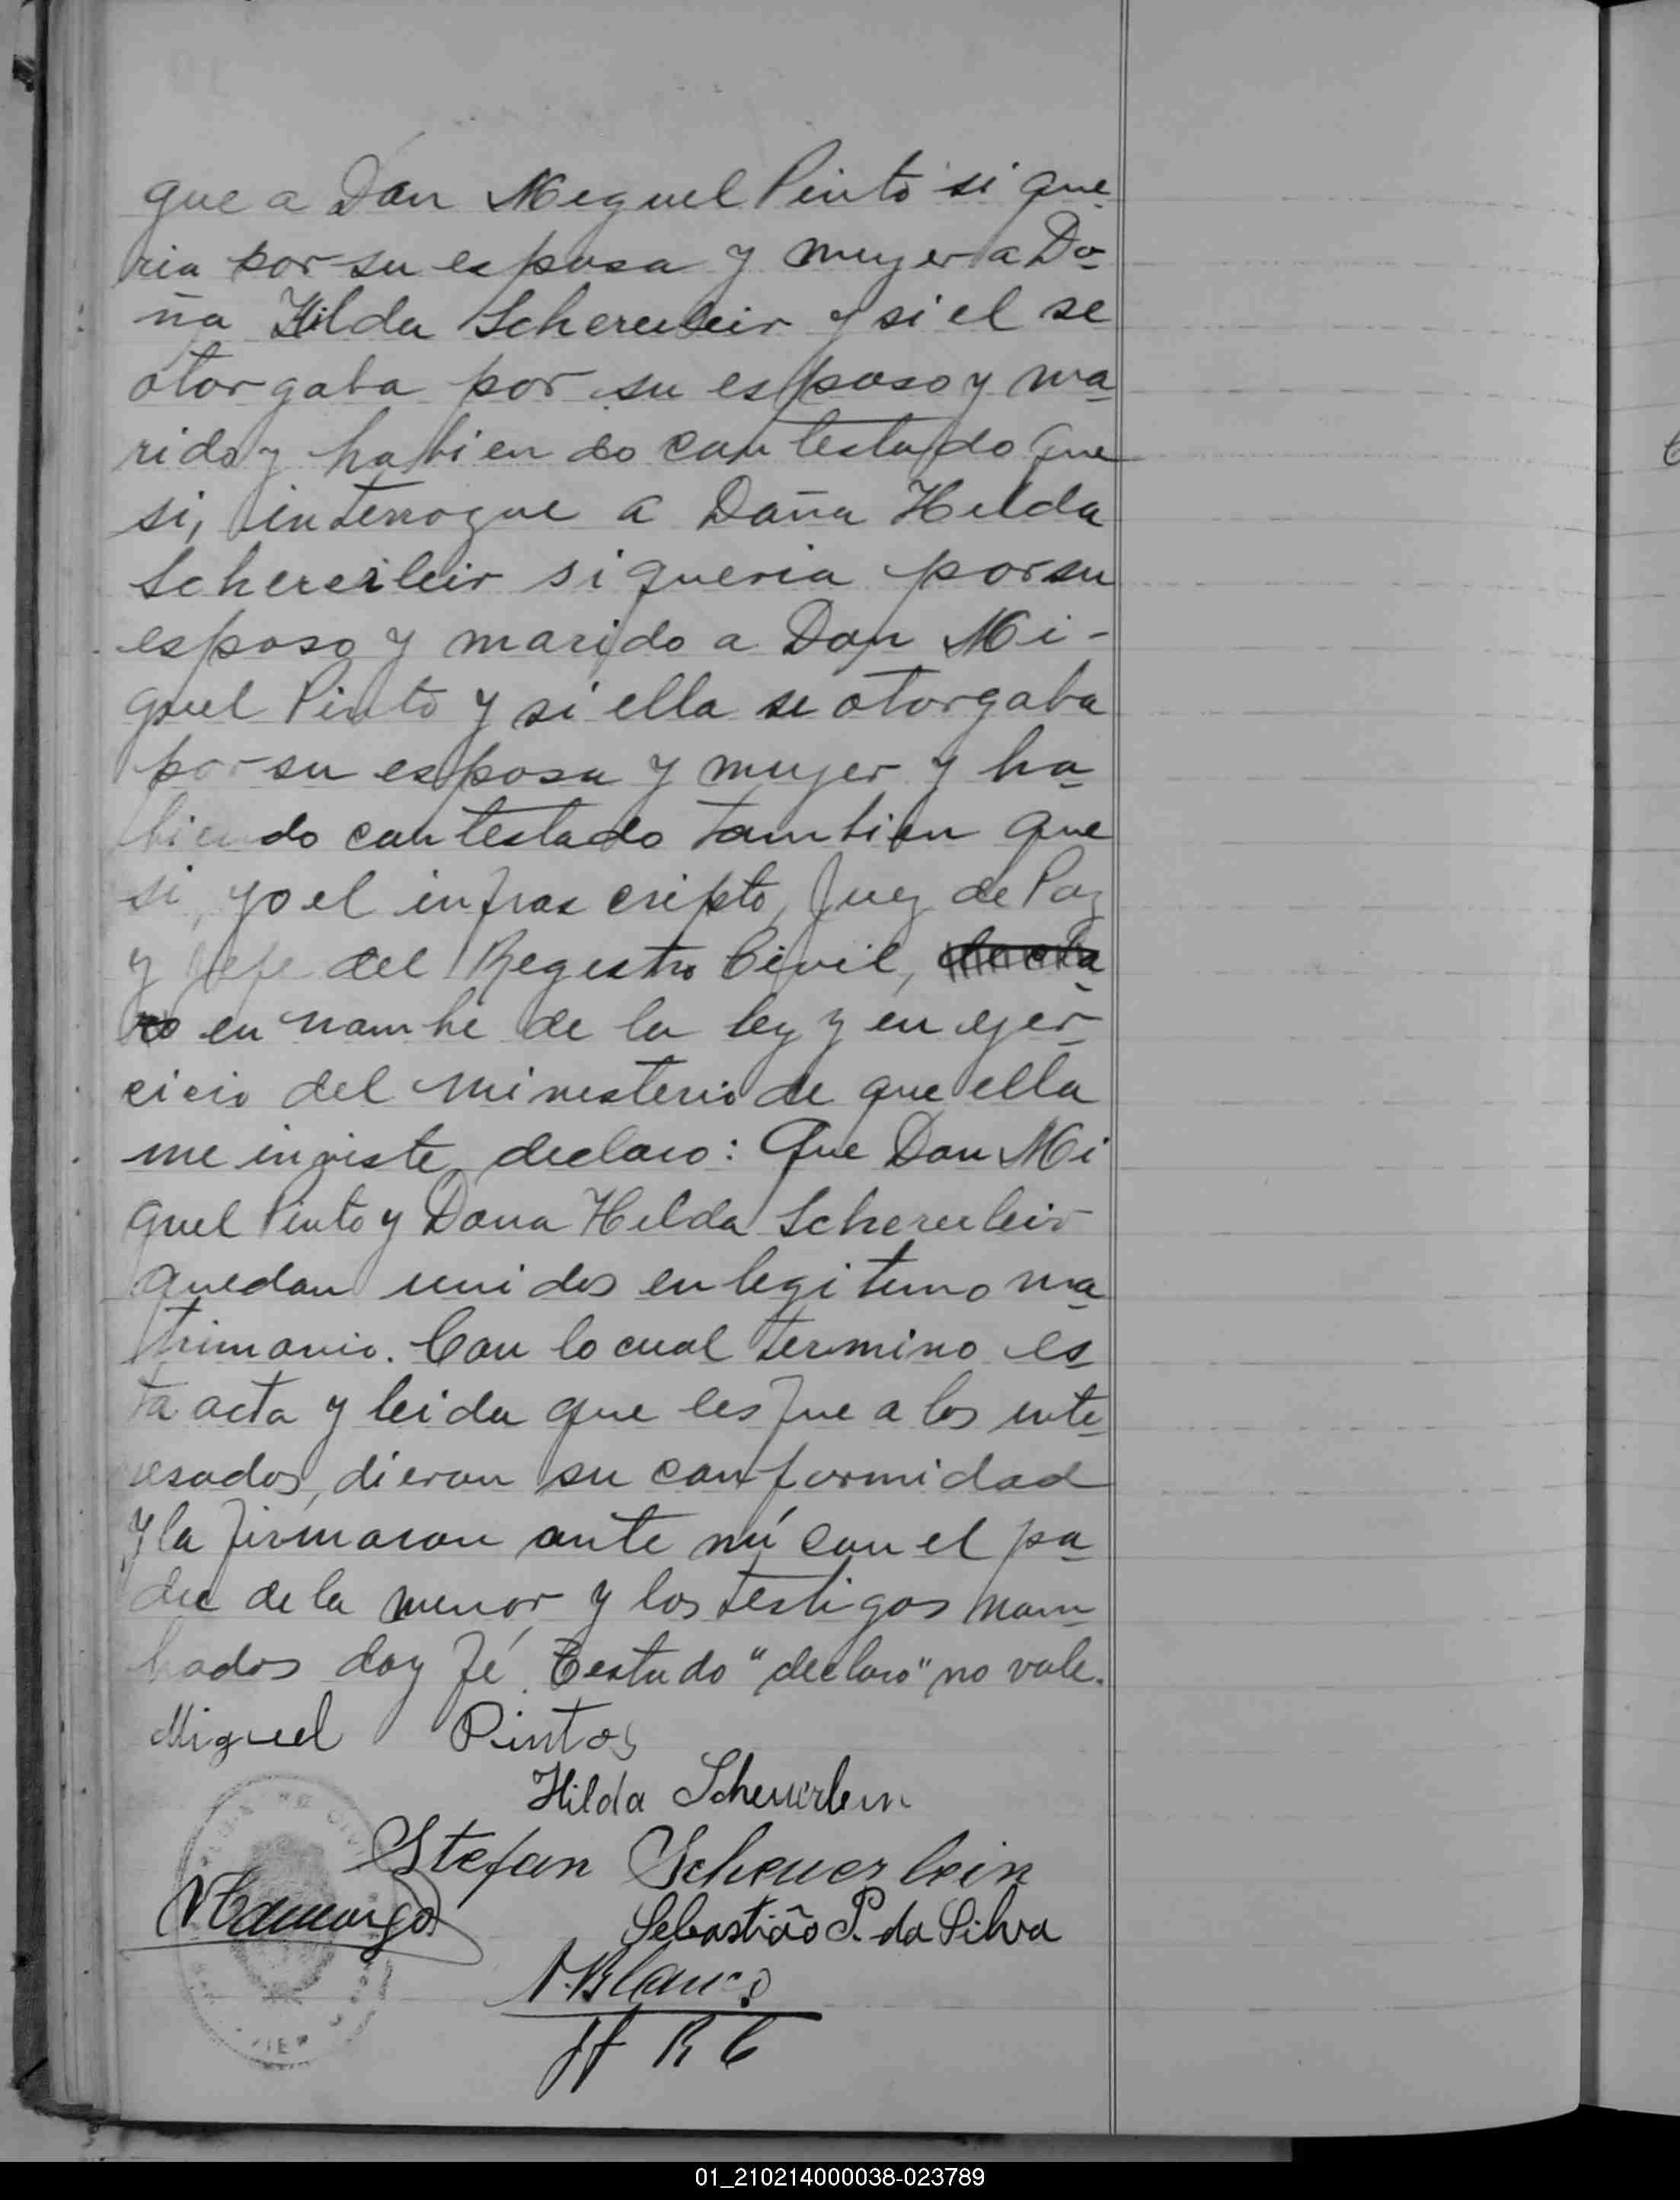 que a Don Miguel Pinto si que-
ria por su esposa y mujer a Do-
ña Hilda Schereuleir y si el se
otorgaba por su esposo y ma-
rido y habiendo contestado que
si, interrogue a Doña Hilda
Schereileir si queria por su
esposo y marido a Don Mi-
guel Pinto y si ella se otorgaba
por su esposa y mujer y ha-
biendo contestado tambien que
si, yo el infrascripto, Juez de Paz
y Jefe del Registro Civil, decla-
ro en nombre de la ley y en ejer-
cicio del ministerio de que ella
me inviste declaro: Que Don Mi
guel Pinto y Dona Hilda Schereuleir
quedan unidos en legitimo ma-
trimonio. Con lo cual termino es-
ta acta y leida que les fue a los inte-
resados, dieron su conformidad
y la firmaron ante mí con el pa-
dre de la menor y los testigos nom-
brados doy fé. Testado "declaro" no vale.
Miguel Pintos
Hilda Scheuerlein
Stefan Scheuerlein
Sebastião P. da Silva
N. Blanco
Jf R C
01_210214000038-023789